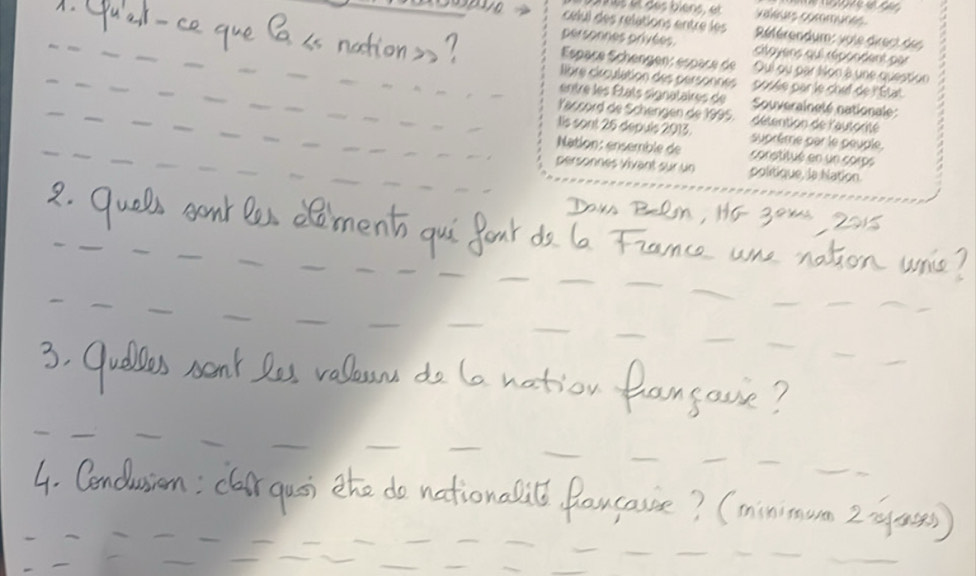 celui des relations entre les
personnes privées.
Espace Schengen: espace de
libre circulation des personnes
entre les États signataires de
l'accord de Schengen de 1995.
Ils sont 26 depuis 2013.
Nation: ensemble de
personnes vivant sur un
valeurs communes.
Référendum: vote direct des
citoyens qui répondent par
Oui ou par Non à une question
posée par le chef de l'État.
Souveraineté nationale:
détention de l'autorité
suprême par le peuple,
constitué en un corps
politique, la Nation.
Dans Belin, HG 3ème, 2015
1. Qu'est-ce que la « nation »?
2. Quels sont les éléments qui font de la France une nation unie?
3. Quelles sont les valeurs de la nation française?
4. Conclusion: c'est quoi être de nationalité française? (minimum 2 réponses)